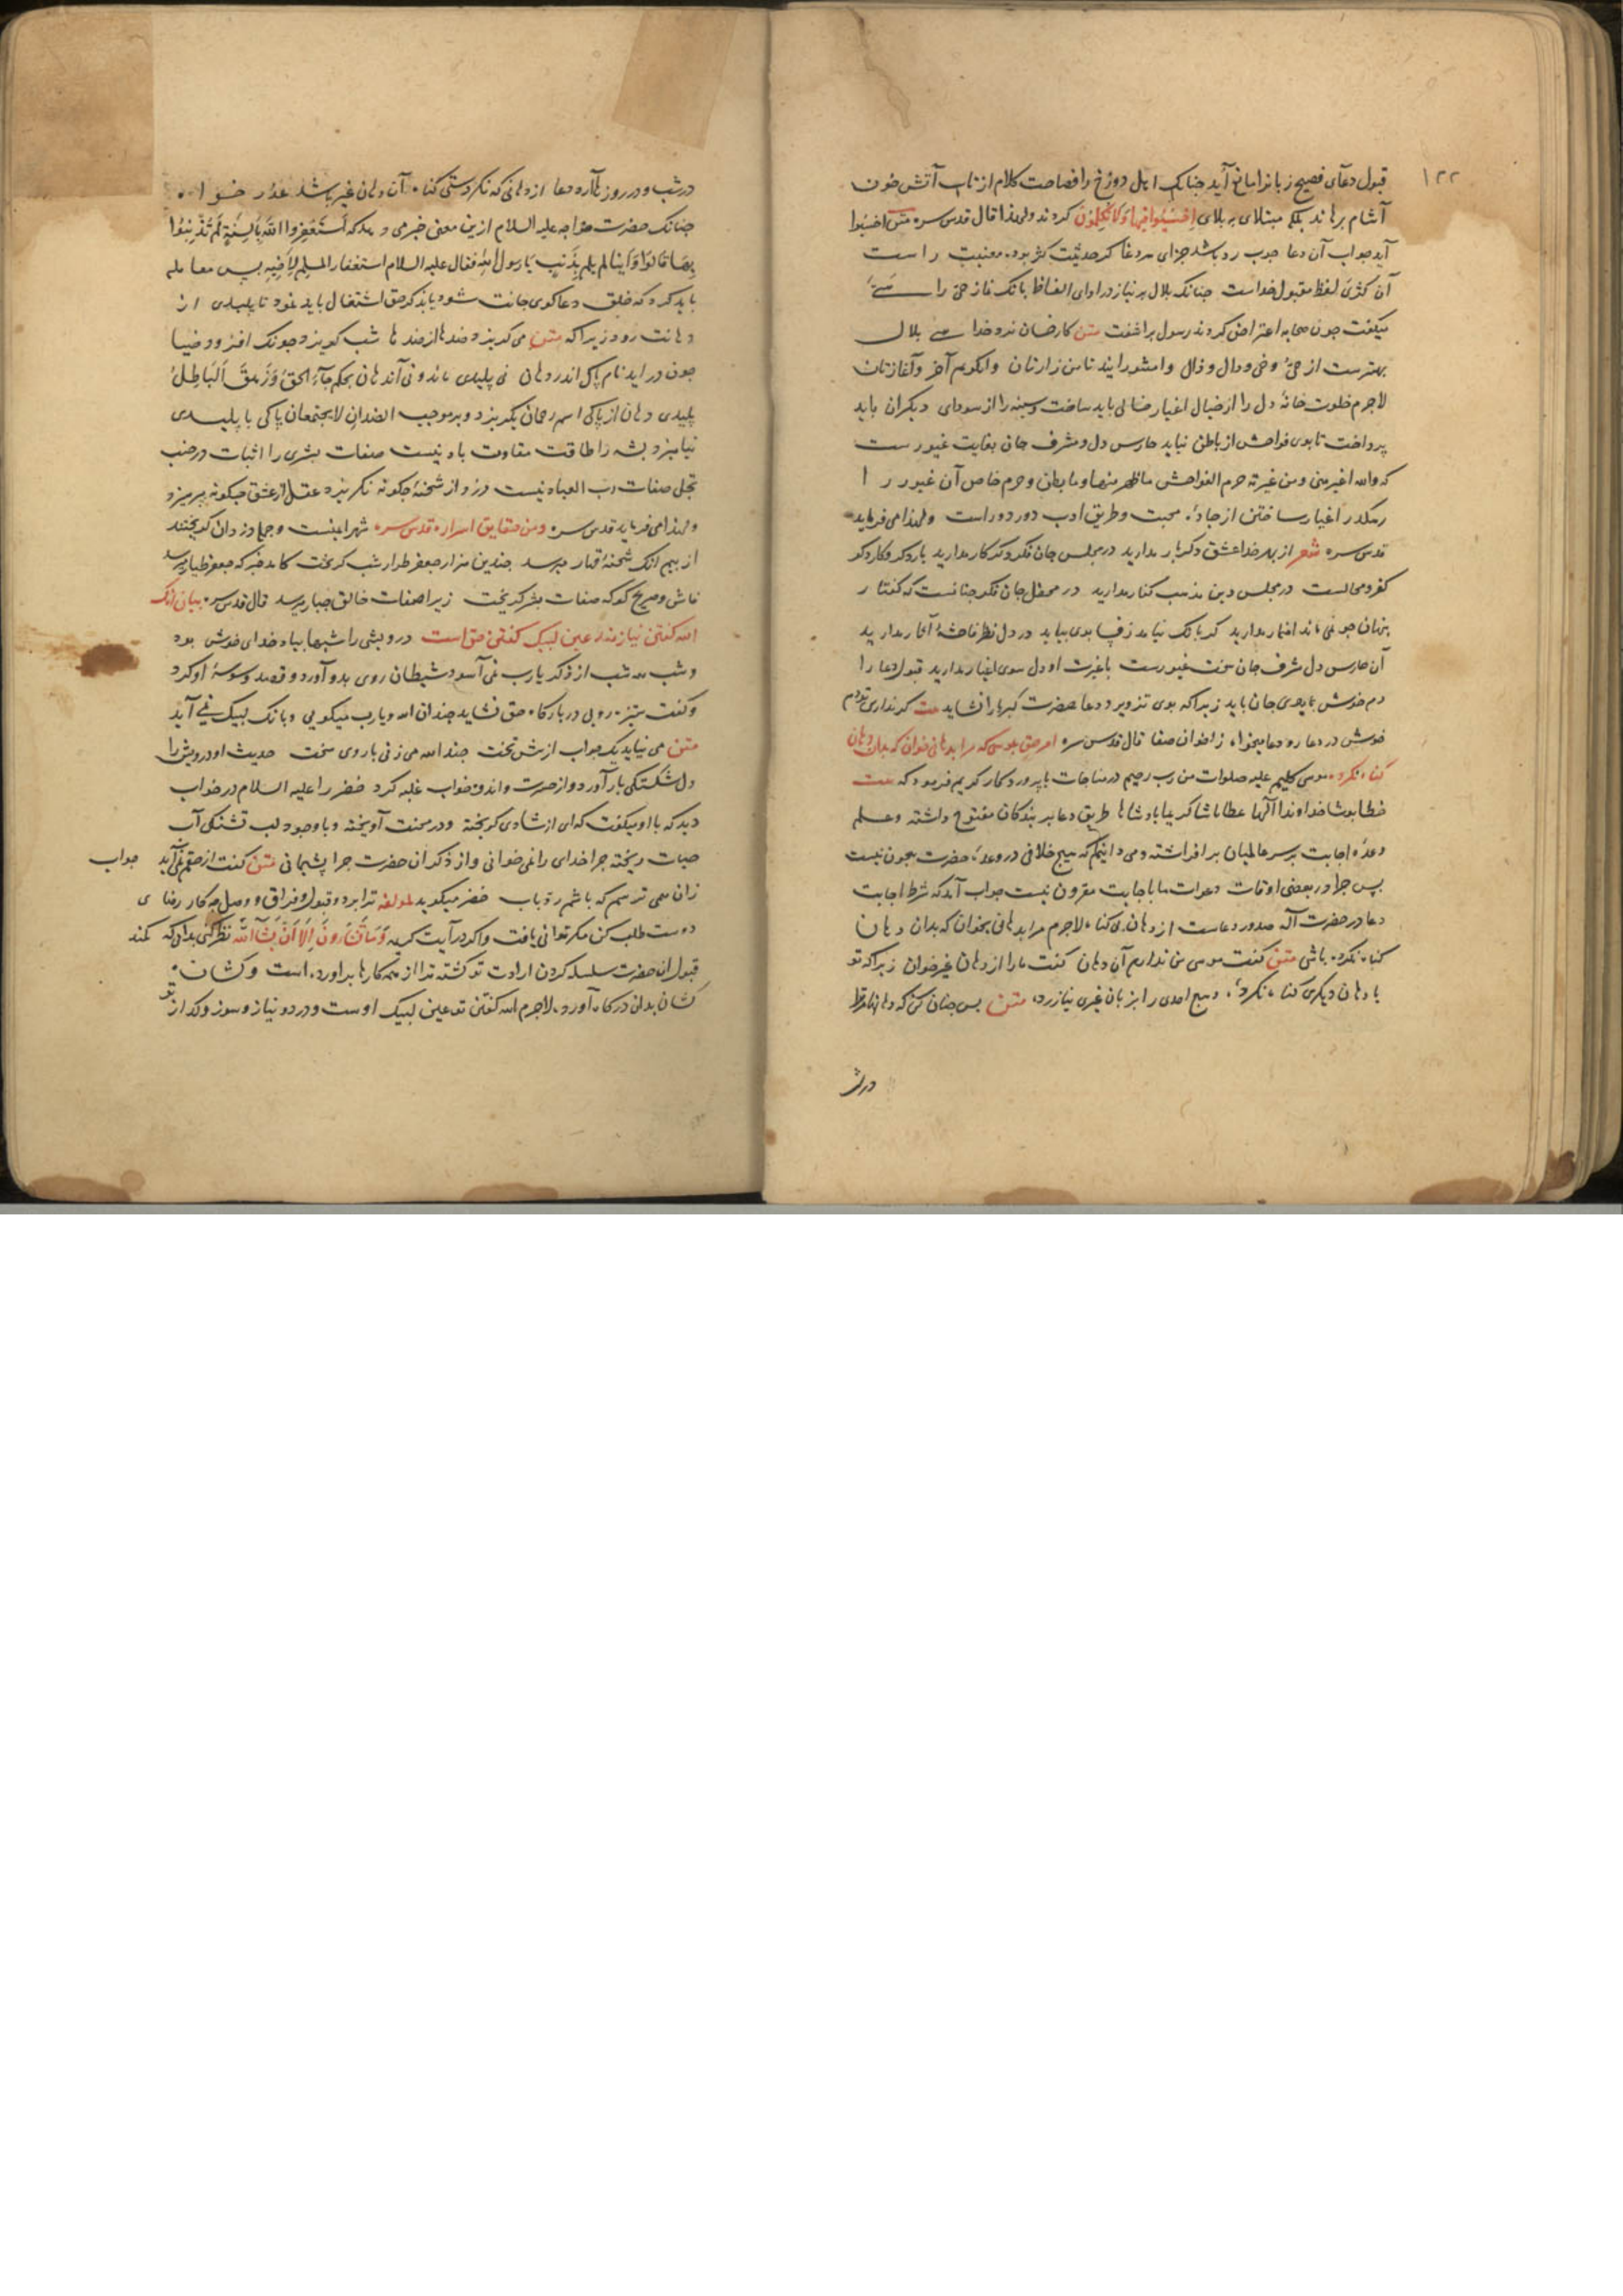 ۱۲۲
قبول دعای فصیح زبانرا مانع آید چنانک اهل دوزخ را فصاحت کلام از تاب آتش خون
آشام برهاند بلکه مبتلای به بلای اِخْسَئُوا فِیهَا وَلَا تُکَلِّمُونِ کردند ولهذا قال قدس سره متن اخسئوا
آید جواب آن دعا چوب رد باشد جزای هر دغا کر حدیثت کژ بود معنیت راست
آن کژی لفظ مقبول خداست چنانک بلال پر نیاز در ادای الفاظ بانک نماز حی را هی
میکفت چون صحابه اعتراض کردند رسول برآشفت متن کای خسان نزد خدا هی بلال
بهترست از حی و خی و دال و ذال وا مشورانید تا من رازتان وانکویم آخر و آغازتان
لاجرم خلوت خانه دل را از خیال اغیار خالی باید ساخت و سینه را از سودای دیکران باید
پرداخت تا بوی فواحش از باطن نیاید حارس دل و مشرف جان بغایت غیورست
که والله اغیر منی ومن غیرته حرم الفواحش ما ظهر منها وما بطن و حرم خاص آن غیور را
رهکذر اغیار ساختن از جاده محبت و طریق ادب دور دوراست ولهذا می فرماید
قدس سره شعر از بهر خدا عشق دکر یار مدارید در مجلس جان فکر دکر کار مدارید یار دکر و کار دکر
کفر و محالست در مجلس دین مذهب کفار مدارید در محفل جان فکر چنانست که کفتار
پنهان چو نمی ماند اضمار مدارید کر بانک نیاید ز فسا بوی بیاید در دل نظر فاحشه آثار مدارید
آن حارس دل مشرف جان سخت غیورست با غیرت او دل سوی اغیار مدارید قبول دعا را
دم خوش با بوی جان باید زیرا که بوی تزویر و دعا حضرت کبریا را نشاید بیت کر نداری تو دم
خوش در دعا رو دعا میخواه ز اخوان صفا قال قدس سره امر حق بموسی که مرا بدهانی خوان که بدان دهان
کناه نکرده موسی کلیم علیه صلوات من رب رحیم در مناجات با پروردکار کریم فرمود که بیت
خطا پوشا خداوندا الها عطا پاشا کریما پادشاها طریق دعا بر بندکان مفتوح داشته و علم
وعده اجابت بر سر عالمیان برافراشته و می دانیم که هیچ خلافی در وعده حضرت بیچون نیست
پس چرا در بعضی اوقات دعوات ما باجابت مقرون نیست جواب آمد که شرط اجابت
دعا در حضرت اله صدور دعاست از دهان بی کناه لاجرم مرا بدهانی بخوان که بدان دهان
کناه نکرده باشی متن کفت موسی من ندارم آن دهان کفت ما را از دهان غیر خوان زیرا که تو
با دهان دیکری کناه نکرده و هیچ احدی را بزبان غیری نیازرده متن پس چنان کن که دهانها مر ترا
در شب
در شب و در روزها آرد دعا از دهانی که نکردستی کناه آن دهان غیر باشد عذر خواه
چنانک حضرت خواجه علیه السلام ازین معنی خبر می دهد که اَسْتَغْفِرُوا اللّٰهَ بِاَلْسِنَةٍ لَمْ تُذْنِبُوا
بِهَا قَالُوا وَاَیْنَا لم یلم بِذَنبٍ یَا رسول الله فقال علیه السلام استغفار المسلم لِاَخِیهِ پس معامله
باید کرد که خلق دعاکوی جانت شود یا بذکر حق اشتغال باید نمود تا پلیدی از
دهانت رود زیرا که متن می کریزد ضدها از ضدها شب کریزد چونک افروزد ضیا
چون در اید نام پاک اندر دهان نی پلیدی ماند و نی آن دهان بحکم جآءَ الحَقُّ وَزَهَقَ اَلْبَاطِلُ
پلیدی دهان از پاکی اسم رحمان بکریزد و بر موجب الضدان لا یجتمعان پاکی با پلیدی
نیامیزد پشه را طاقت مقاومت باد نیست صفات بشری را اثبات در جنب
تجلی صفات رب العباد نیست دزد از شحنه چکونه نکریزد عقل از عشق چکونه بپرهیزد
ولهذا می فرماید قدس سره ومن حقایق اسراره قدس سره شهر ایمنست و جمله دزدان کریختند
از بیم انک شحنه قهار میرسد چندین هزار جعفر طرار شب کریخت کامد خبر که جعفر طیار میرسد
فاش و صریح کو که صفات بشر کریخت زیرا صفات خالق جبار میرسد قال قدس سره بیان انک
الله کفتن نیازمند عین لبیک کفتن حق است درویشی را شبها بیاد خدای خوش بود
و شب همه شب از ذکر یارب نمی آسود شیطان روی بدو آورد و قصد وسوسه او کرد
و کفت ستیزه رویی در بارکاه حق نشاید چندان الله و یارب میکویی و بانک لبیک نمی آید
متن می نیاید یک جواب از پیش تخت چند الله می زنی با روی سخت حدیث او درویش را
دل شکستکی بار آورد و از حسرت و اندوه خواب غلبه کرد خضر را علیه السلام در خواب
دید که با او میکفت که ای از شادی کریخته و در محنت آویخته و با وجود لب تشنکی آب
حیات ریخته چرا خدای را نمی خوانی و از ذکر آن حضرت چرا پشیمانی متن کفت از حقم نمی آید جواب
زان همی ترسم که باشم رد باب خضر میکوید لمولفه ترا برد و قبول و فراق و وصل چه کار رضای
دوست طلب کن مکر توانی یافت و اکر در آیت کریمه وَمَا تَشَاءُونَ اِلَّا اَنْ یَشَآءَ اللّٰه نظر کنی بدانی که کمند
قبول آن حضرت سلسله کردن ارادت تو کشته ترا از همه کارها براورده است و کشان
کشان بدان درکاه آورده لاجرم الله کفتن تو عین لبیک اوست و درد و نیاز و سوز و کداز تو